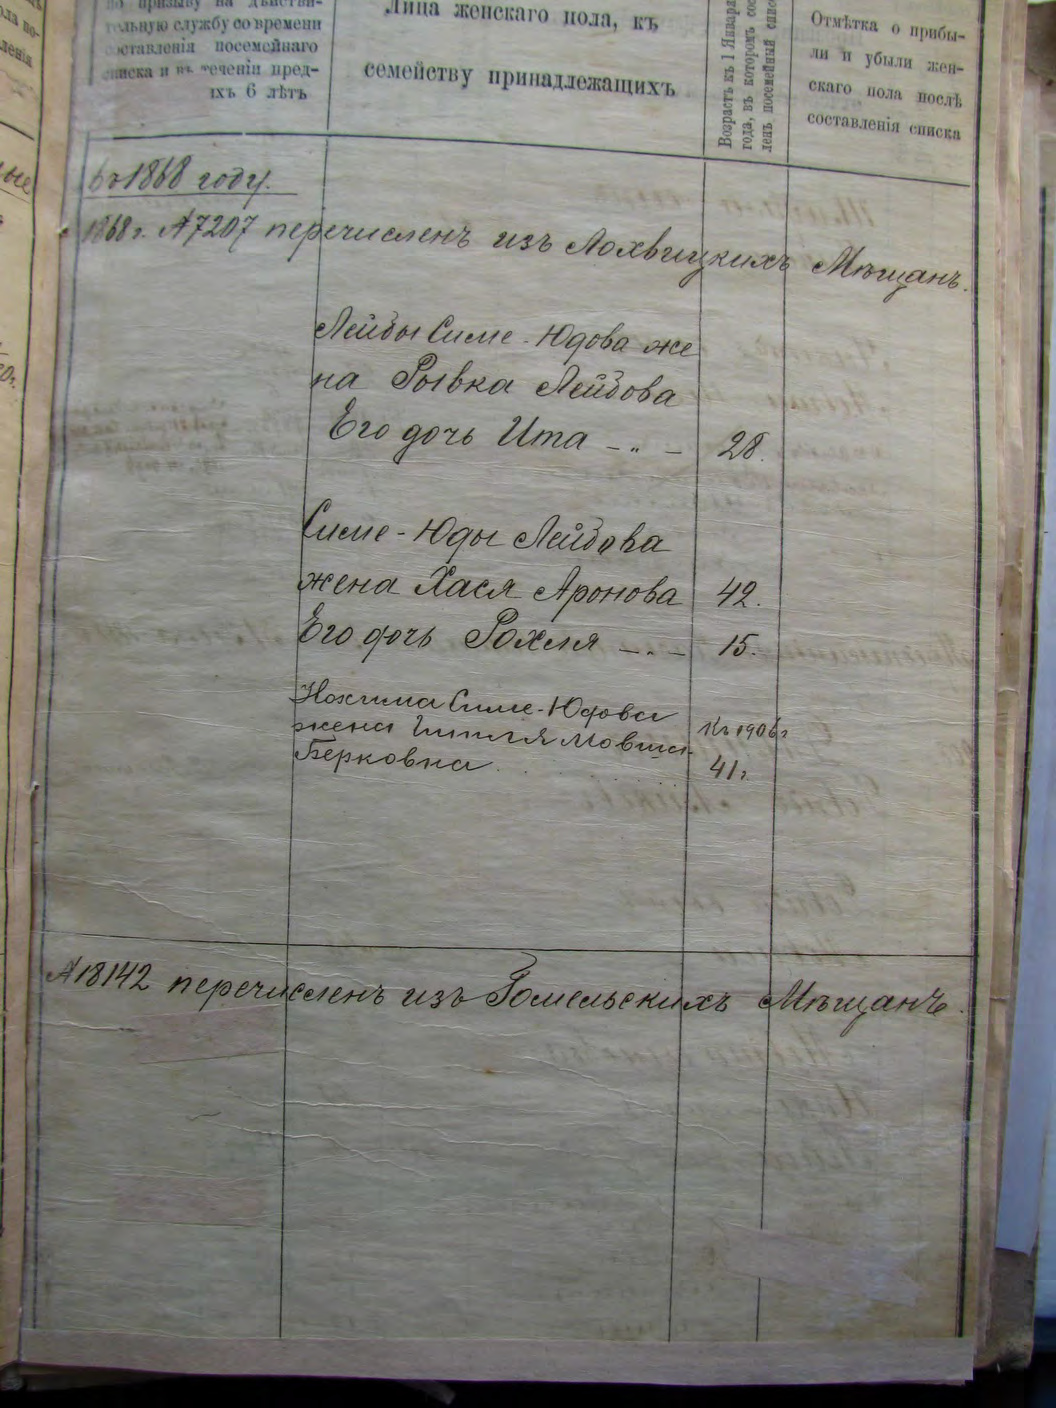 по призыву на дѣйстви-
тельную службу со времени
составленія посемейнаго
списка и въ теченіи пред-
ихъ 6 лѣтъ
Лица женскаго пола, къ
семейству принадлежащихъ
Возрастъ къ 1 Января
года, въ которомъ сос
ленъ посемейный спис
Отмѣтка о прибы-
ли и убыли жен-
скаго пола послѣ
составленія списка
въ 1868 году.
1868 г. № 7207 перечисленъ изъ Лохвицкихъ Мѣщанъ.
Лейбы Симе-Юдова же
на Рывка Лейбова
Его дочь Ита — „ — 28.
Симе-Юды Лейбова
жена Хася Аронова 42.
Его дочь Рохля — „ — 15.
Нохима Симе-Юдова
жена Мовша- Къ 1906 г
Берковна 41 г.
№ 18142 перечисленъ изъ Гомельскихъ Мѣщанъ.